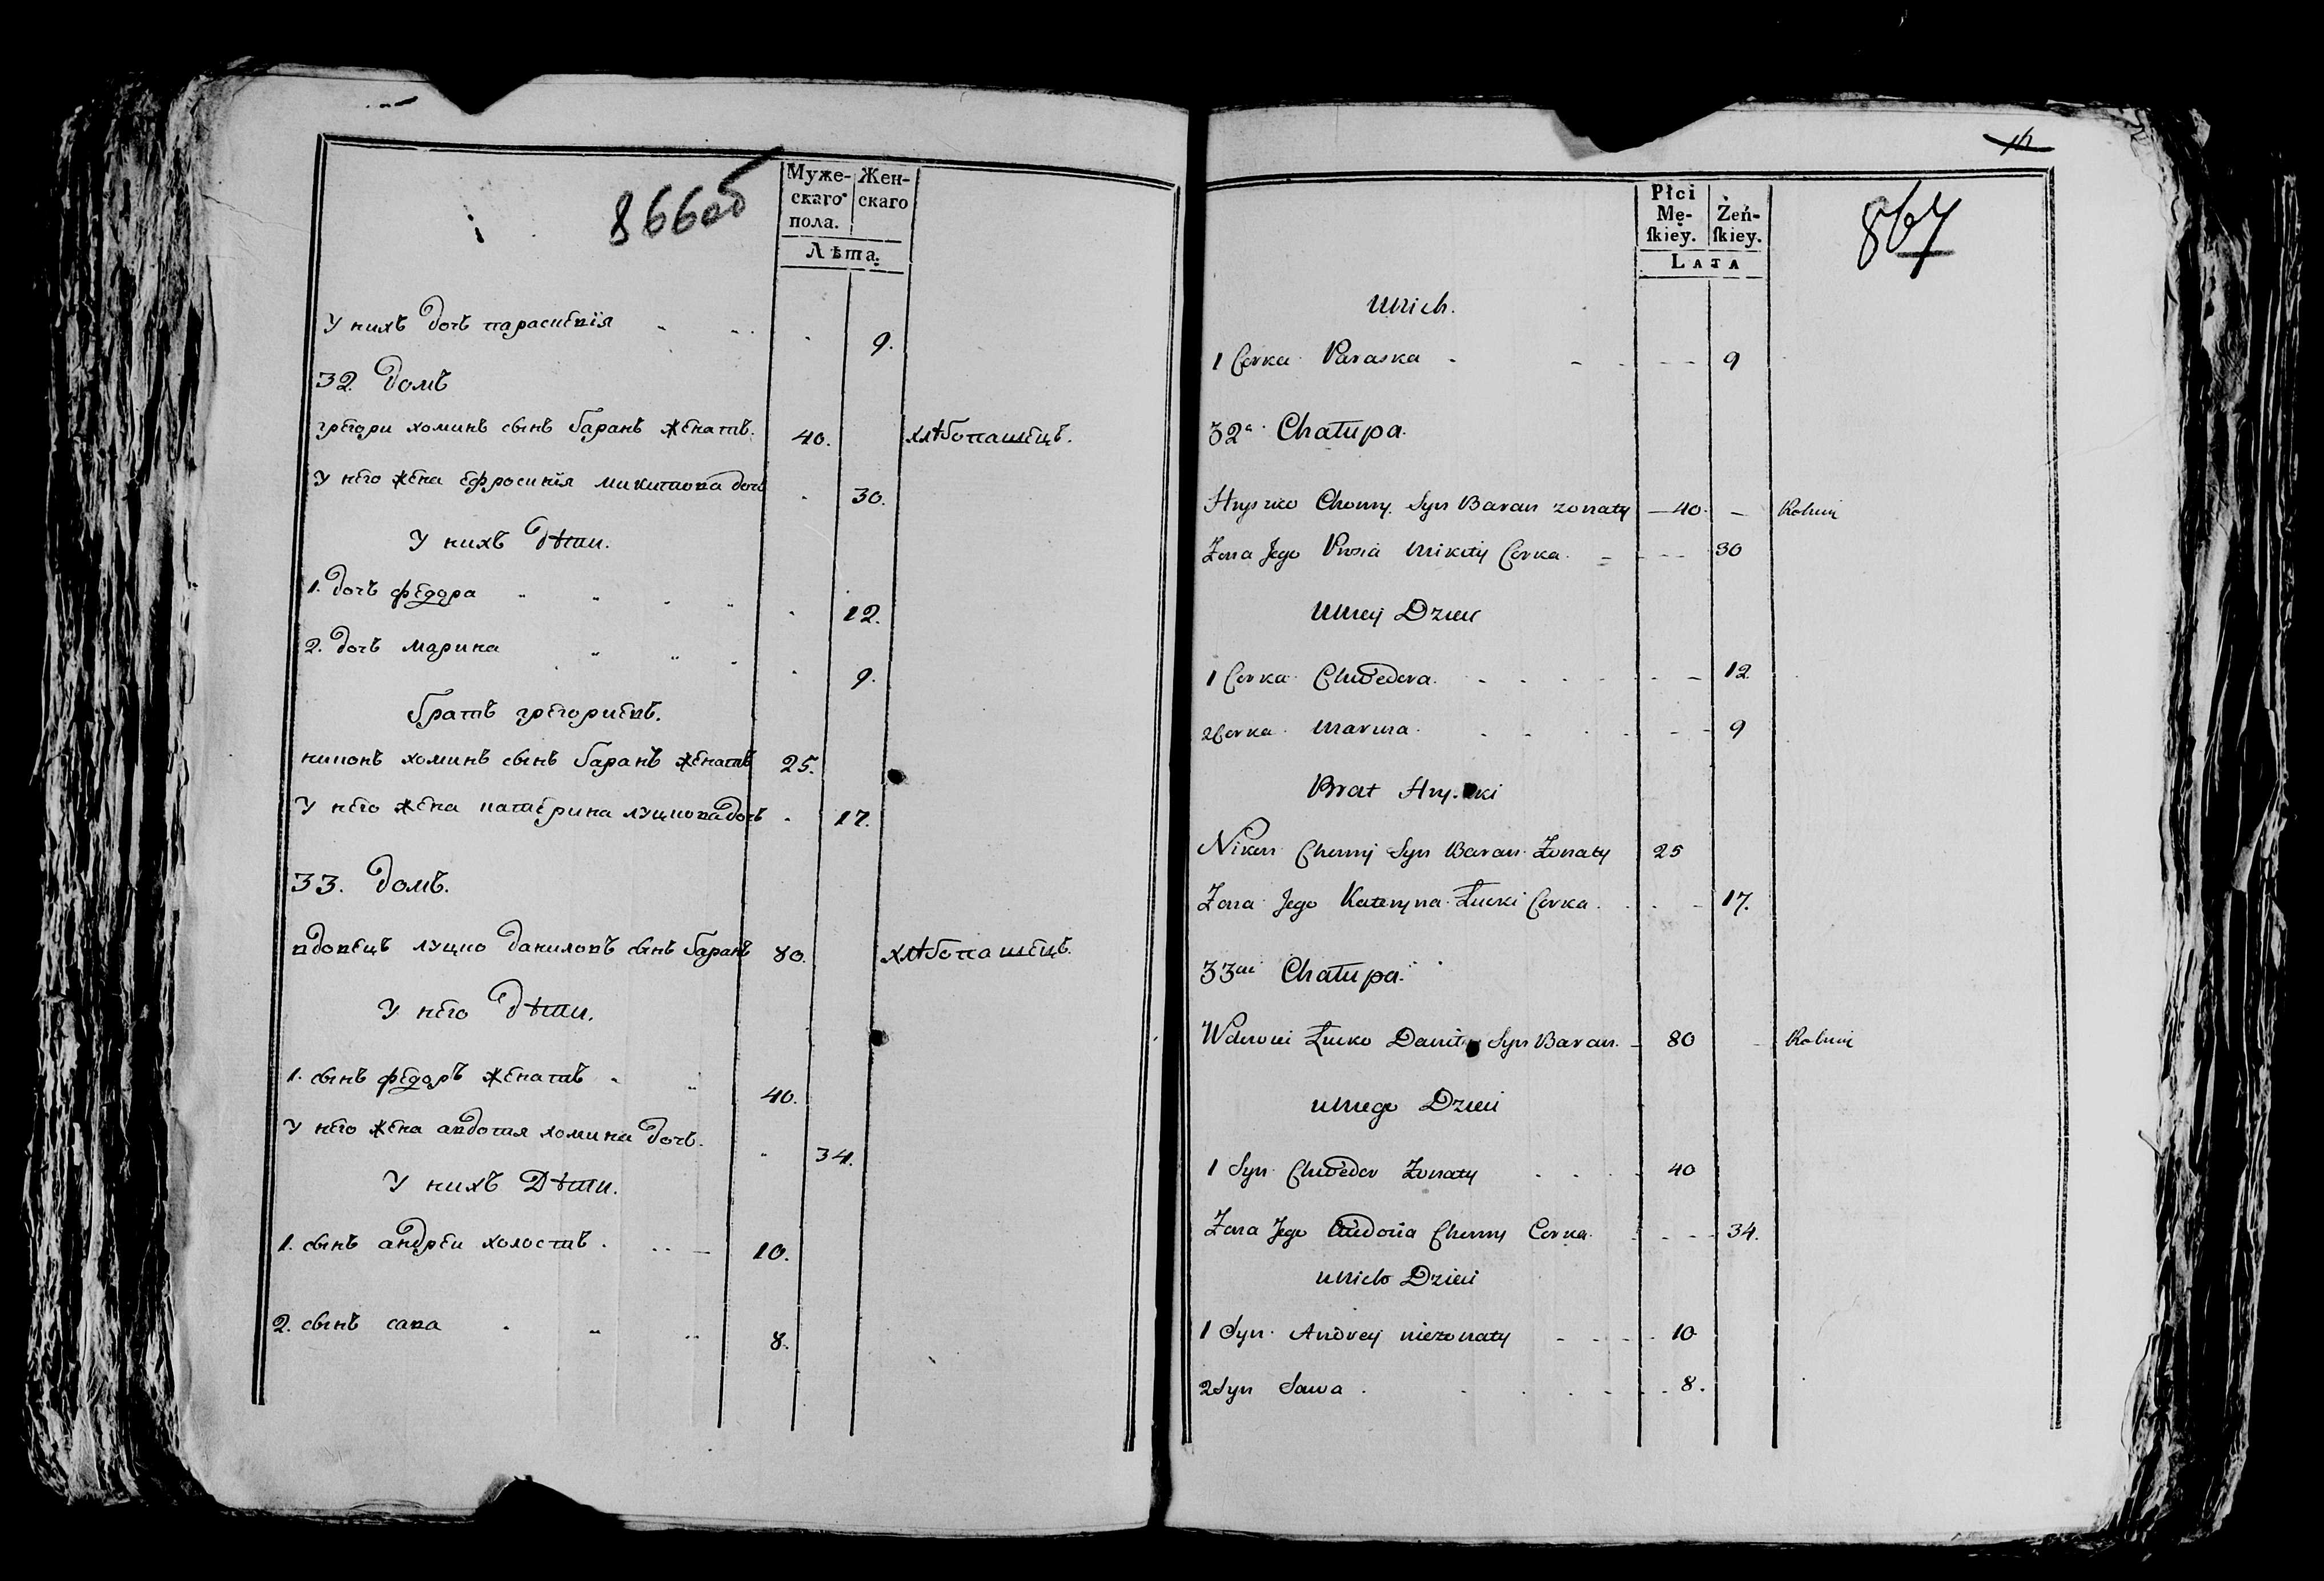 866об
Муже-
скаго
пола.
Жен-
скаго
Лѣта.
У нихъ дочь параскевія 9.
32. домъ
грегори хоминъ сынъ баранъ женатъ. 40. хлѣбопашецъ.
У него жена ефросинія микитова дочь 30.
У нихъ дѣти.
1. дочь федора 12.
2. дочь марина 9.
братъ грегориевъ.
никонъ хоминъ сынъ баранъ женатъ 25.
У него жена катерина луцкова дочь 17.
33. домъ.
вдовецъ луцко даниловъ сынъ баранъ 80. хлѣбопашецъ.
У него дѣти.
1. сынъ федоръ женатъ 40.
У него жена авдотя хомина дочь. 34.
У нихъ Дѣти.
1. сынъ андреи холостъ. 10.
2. сынъ сава 8.
867
Płci
Mę-
ſkiey.
Żeń-
ſkiey.
LATA
Unich.
1 Corka Paraska 9
32a Chałupa.
Hryszko Chomy Syn Baran zonaty 40 Rolnik
Zona Jego Prosia Mikity Corka 30
Dzieci
1 Corka Chwedora 12
2 Corka Marina 9
Brat
Nikon Chomy Syn Baran Zonaty 25
Zona Jego Kateryna Łucki Corka 17.
33cia Chałupa.
Łucko Daniły Syn Baran 80 Rolnik
Uniego Dzieci
1 Syn Chwedor Zonaty 40
Zona Jego Audocia Chomy Corka 34.
Unich Dzieci
1 Syn Andrey niezonaty 10
2 Syn Sawa 8.